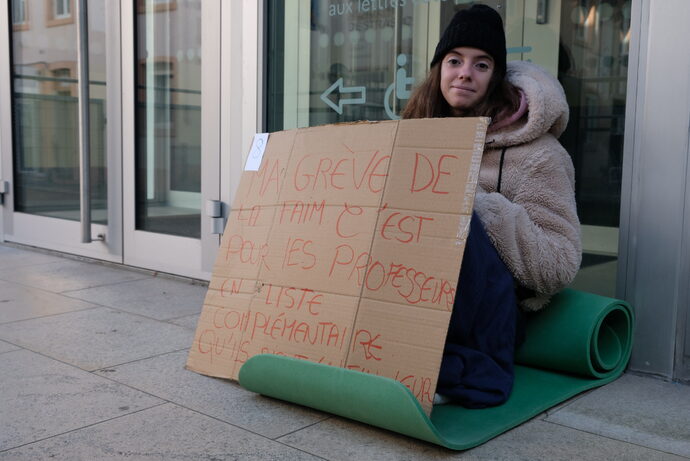 aux lettres
8
MA GRÈVE DE
LA FAIM C'EST
POUR LES PROFESSEURS
EN LISTE
COMPLÉMENTAIRE
QU'ILS LEUR